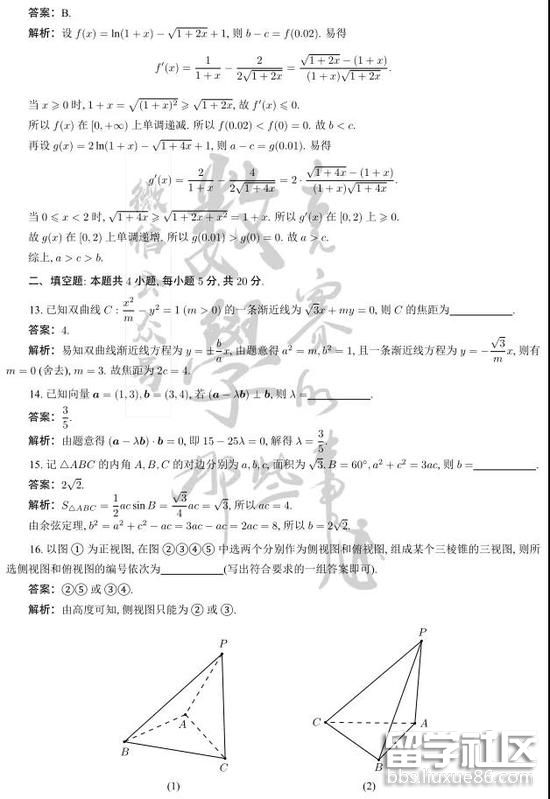 答案：B.
解析：设 f(x) = ln(1 + x) − √(1 + 2x) + 1, 则 b − c = f(0.02). 易得
f′(x) = 1/(1 + x) − 2/(2√(1 + 2x)) = (√(1 + 2x) − (1 + x))/((1 + x)√(1 + 2x)).
当 x ⩾ 0 时, 1 + x = √((1 + x)²) ⩾ √(1 + 2x), 故 f′(x) ⩽ 0.
所以 f(x) 在 [0, +∞) 上单调递减. 所以 f(0.02) < f(0) = 0. 故 b < c.
再设 g(x) = 2 ln(1 + x) − √(1 + 4x) + 1, 则 a − c = g(0.01). 易得
g′(x) = 2/(1 + x) − 4/(2√(1 + 4x)) = 2 · (√(1 + 4x) − (1 + x))/((1 + x)√(1 + 4x)).
当 0 ⩽ x < 2 时, √(1 + 4x) ⩾ √(1 + 2x + x²) = 1 + x. 所以 g′(x) 在 [0, 2) 上 ⩾ 0.
故 g(x) 在 [0, 2) 上单调递增. 所以 g(0.01) > g(0) = 0. 故 a > c.
综上, a > c > b.
二、填空题: 本题共 4 小题, 每小题 5 分, 共 20 分.
13. 已知双曲线 C : x²/m − y² = 1 (m > 0) 的一条渐近线为 √3x + my = 0, 则 C 的焦距为
答案：4.
解析：易知双曲线渐近线方程为 y = ±(b/a)x, 由题意得 a² = m, b² = 1, 且一条渐近线方程为 y = −(√3/m)x, 则有
m = 0 (舍去), m = 3. 故焦距为 2c = 4.
14. 已知向量 a = (1, 3), b = (3, 4), 若 (a − λb) ⊥ b, 则 λ =
答案：3/5.
解析：由题意得 (a − λb) · b = 0, 即 15 − 25λ = 0, 解得 λ = 3/5.
15. 记 △ABC 的内角 A, B, C 的对边分别为 a, b, c, 面积为 √3, B = 60°, a² + c² = 3ac, 则 b =
答案：2√2.
解析：S△ABC = (1/2)ac sin B = (√3/4)ac = √3, 所以 ac = 4.
由余弦定理, b² = a² + c² − ac = 3ac − ac = 2ac = 8, 所以 b = 2√2.
16. 以图 ① 为正视图, 在图 ②③④⑤ 中选两个分别作为侧视图和俯视图, 组成某个三棱锥的三视图, 则所
选侧视图和俯视图的编号依次为 (写出符合要求的一组答案即可).
答案：②⑤ 或 ③④.
解析：由高度可知, 侧视图只能为 ② 或 ③.
P
A
B
C
(1)
P
C
A
B
(2)
留学社区
bbs.liuxue86.com